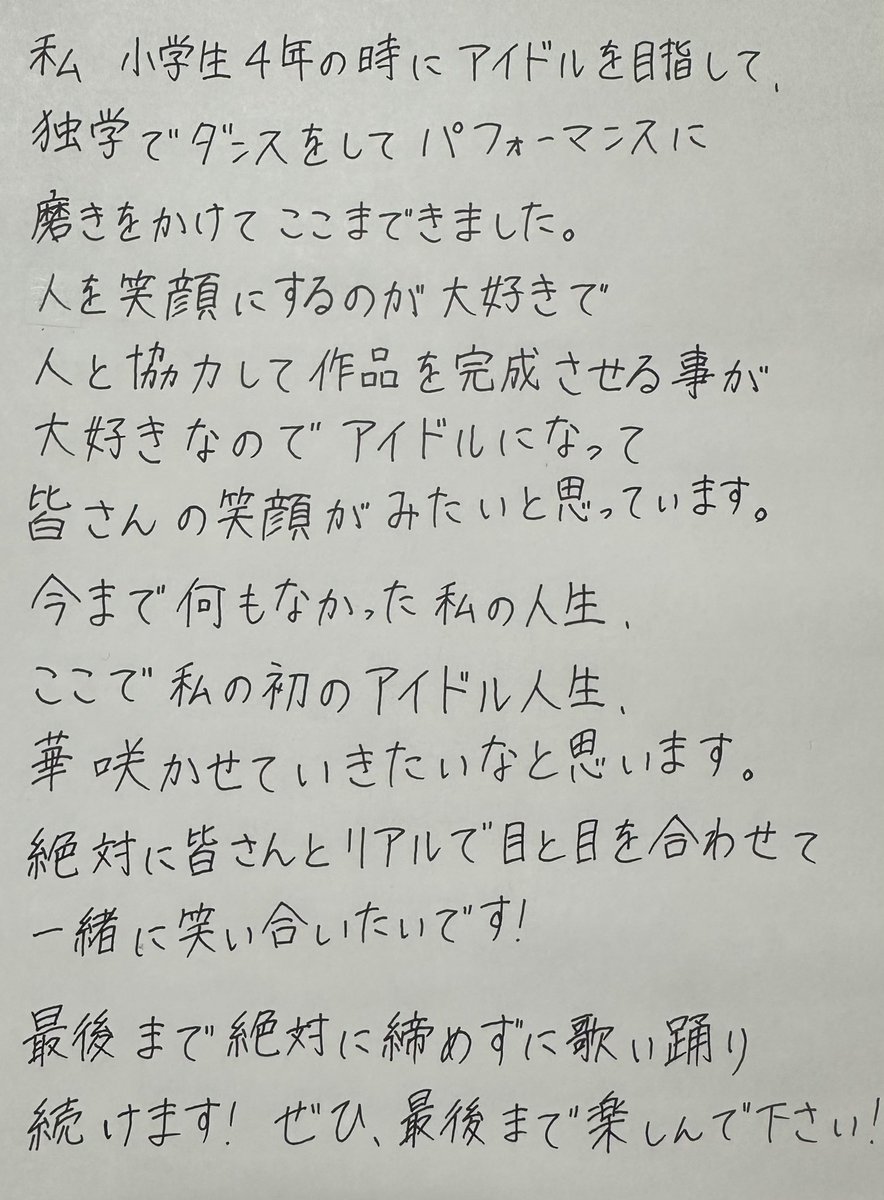 私 小学生4年の時にアイドルを目指して、
独学でダンスをしてパフォーマンスに
磨きをかけてここまできました。
人を笑顔にするのが大好きで
人と協力して作品を完成させる事が
大好きなのでアイドルになって
皆さんの笑顔がみたいと思っています。
今まで何もなかった私の人生、
ここで私の初のアイドル人生、
華咲かせていきたいなと思います。
絶対に皆さんとリアルで目と目を合わせて
一緒に笑い合いたいです!
最後まで絶対に締めずに歌い踊り
続けます! ぜひ、最後まで楽しんで下さい!